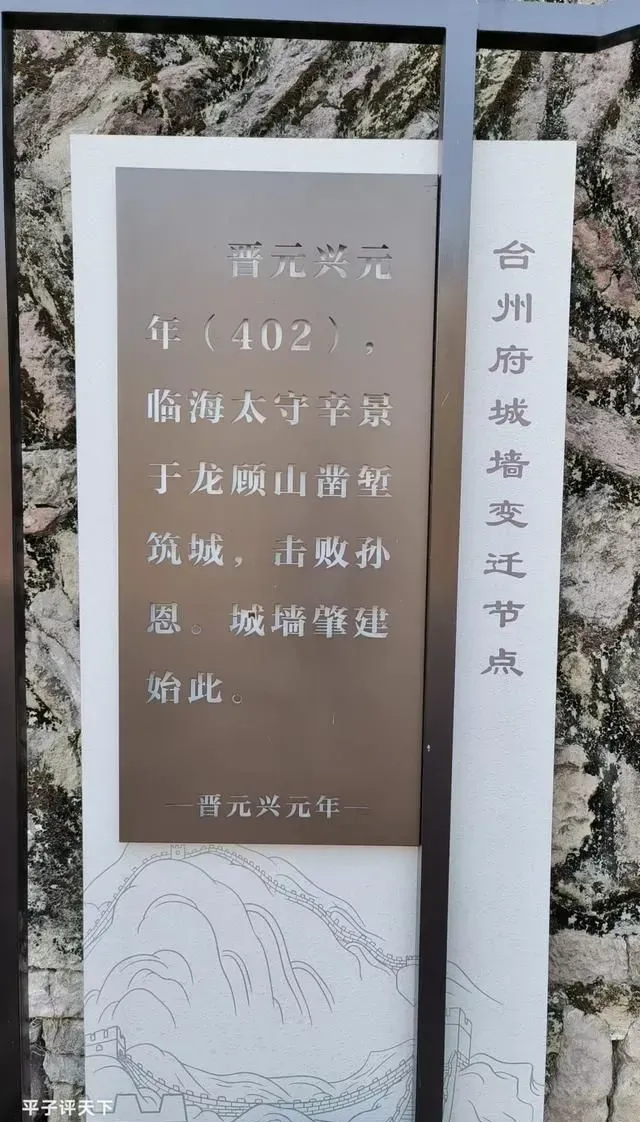 台州府城墙变迁节点
晋元兴元
年（402），
临海太守辛景
于龙顾山凿堑
筑城，击败孙
恩。城墙肇建
始此。
—晋元兴元年—
平子评天下